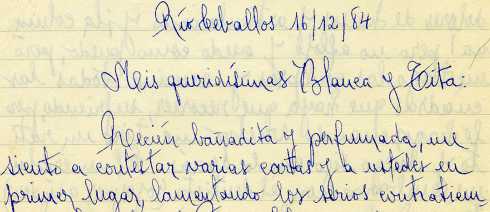 Río Ceballos 16/12/84
Mis queridísimas Blanca y Tita:
Recién bañadita y perfumada, me
siento a contestar varias cartas y a ustedes en
primer lugar, lamentando los serios contratiem